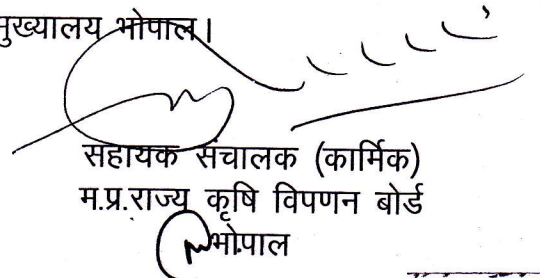 मुख्यालय भोपाल।
सहायक संचालक (कार्मिक)
म.प्र.राज्य कृषि विपणन बोर्ड
भोपाल